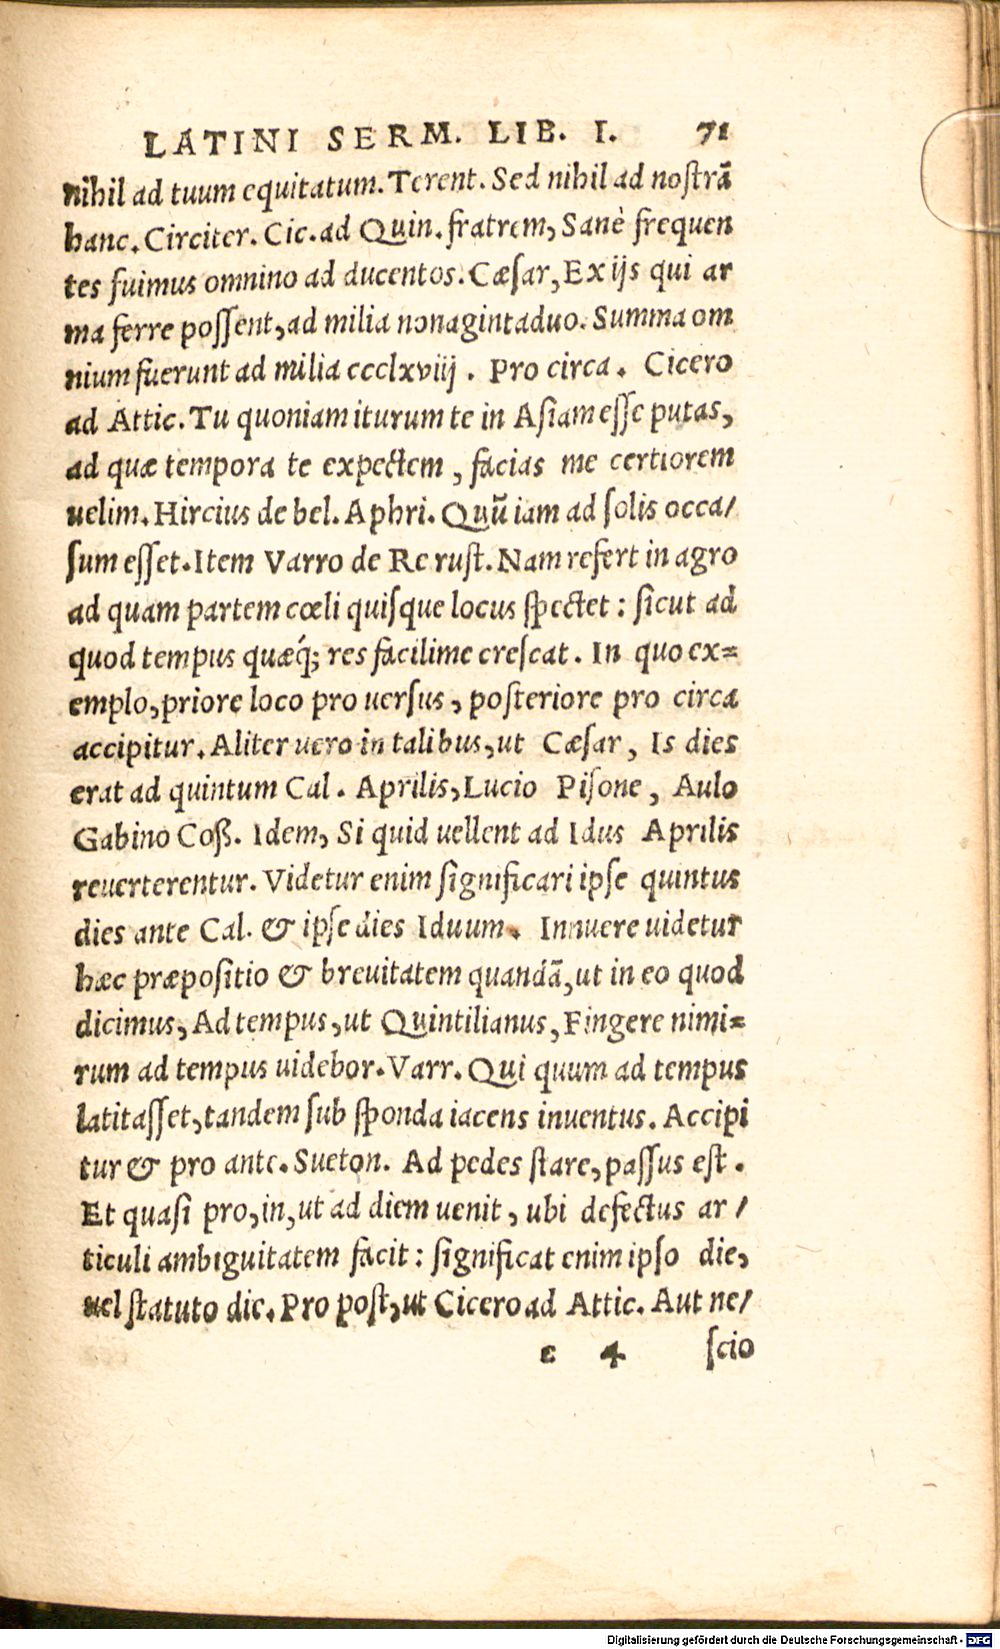 LATINI SERM. LIB. I. 71
nihil ad tuum equitatum. Terent. Sed nihil ad nostrā
hanc. Circiter. Cic. ad Quin. fratrem, Sanè frequen
tes fuimus omnino ad ducentos. Cæsar, Ex ijs qui ar
ma ferre possent, ad milia nonagintaduo. Summa om
nium fuerunt ad milia ccclxviij. Pro circa. Cicero
ad Attic. Tu quoniam iturum te in Asiam esse putas,
ad quæ tempora te expectem, facias me certiorem
uelim. Hircius de bel. Aphri. Quū iam ad solis occa/
sum esset. Item Varro de Re rust. Nam refert in agro
ad quam partem cœli quisque locus spectet: sicut ad
quod tempus quæq́; res facilime crescat. In quo ex=
emplo, priore loco pro uersus, posteriore pro circa
accipitur. Aliter uero in talibus, ut Cæsar, Is dies
erat ad quintum Cal. Aprilis, Lucio Pisone, Aulo
Gabino Coß. Idem, Si quid uellent ad Idus Aprilis
reuerterentur. Videtur enim significari ipse quintus
dies ante Cal. & ipse dies Iduum. Innuere uidetur
hæc præpositio & breuitatem quandā, ut in eo quod
dicimus, Ad tempus, ut Quintilianus, Fingere nimi=
rum ad tempus uidebor. Varr. Qui quum ad tempus
latitasset, tandem sub sponda iacens inuentus. Accipi
tur & pro ante. Sueton. Ad pedes stare, passus est.
Et quasi pro, in, ut ad diem uenit, ubi defectus ar/
ticuli ambiguitatem facit: significat enim ipso die,
uel statuto die. Pro post, ut Cicero ad Attic. Aut ne/
e 4 scio
Digitalisierung gefördert durch die Deutsche Forschungsgemeinschaft - DFG